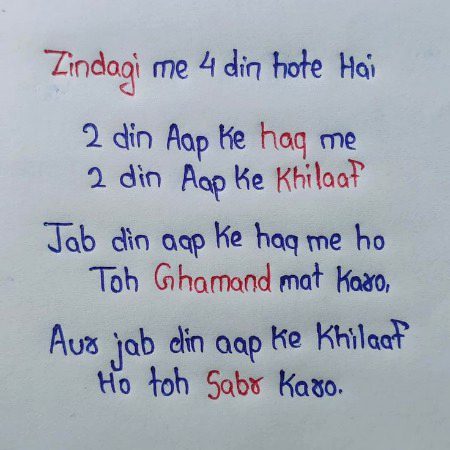 Zindagi me 4 din hote Hai
2 din Aap Ke haq me
2 din Aap Ke Khilaaf
Jab din aap Ke haq me ho
Toh Ghamand mat Karo,
Aur jab din aap Ke Khilaaf
Ho toh Sabr Karo.